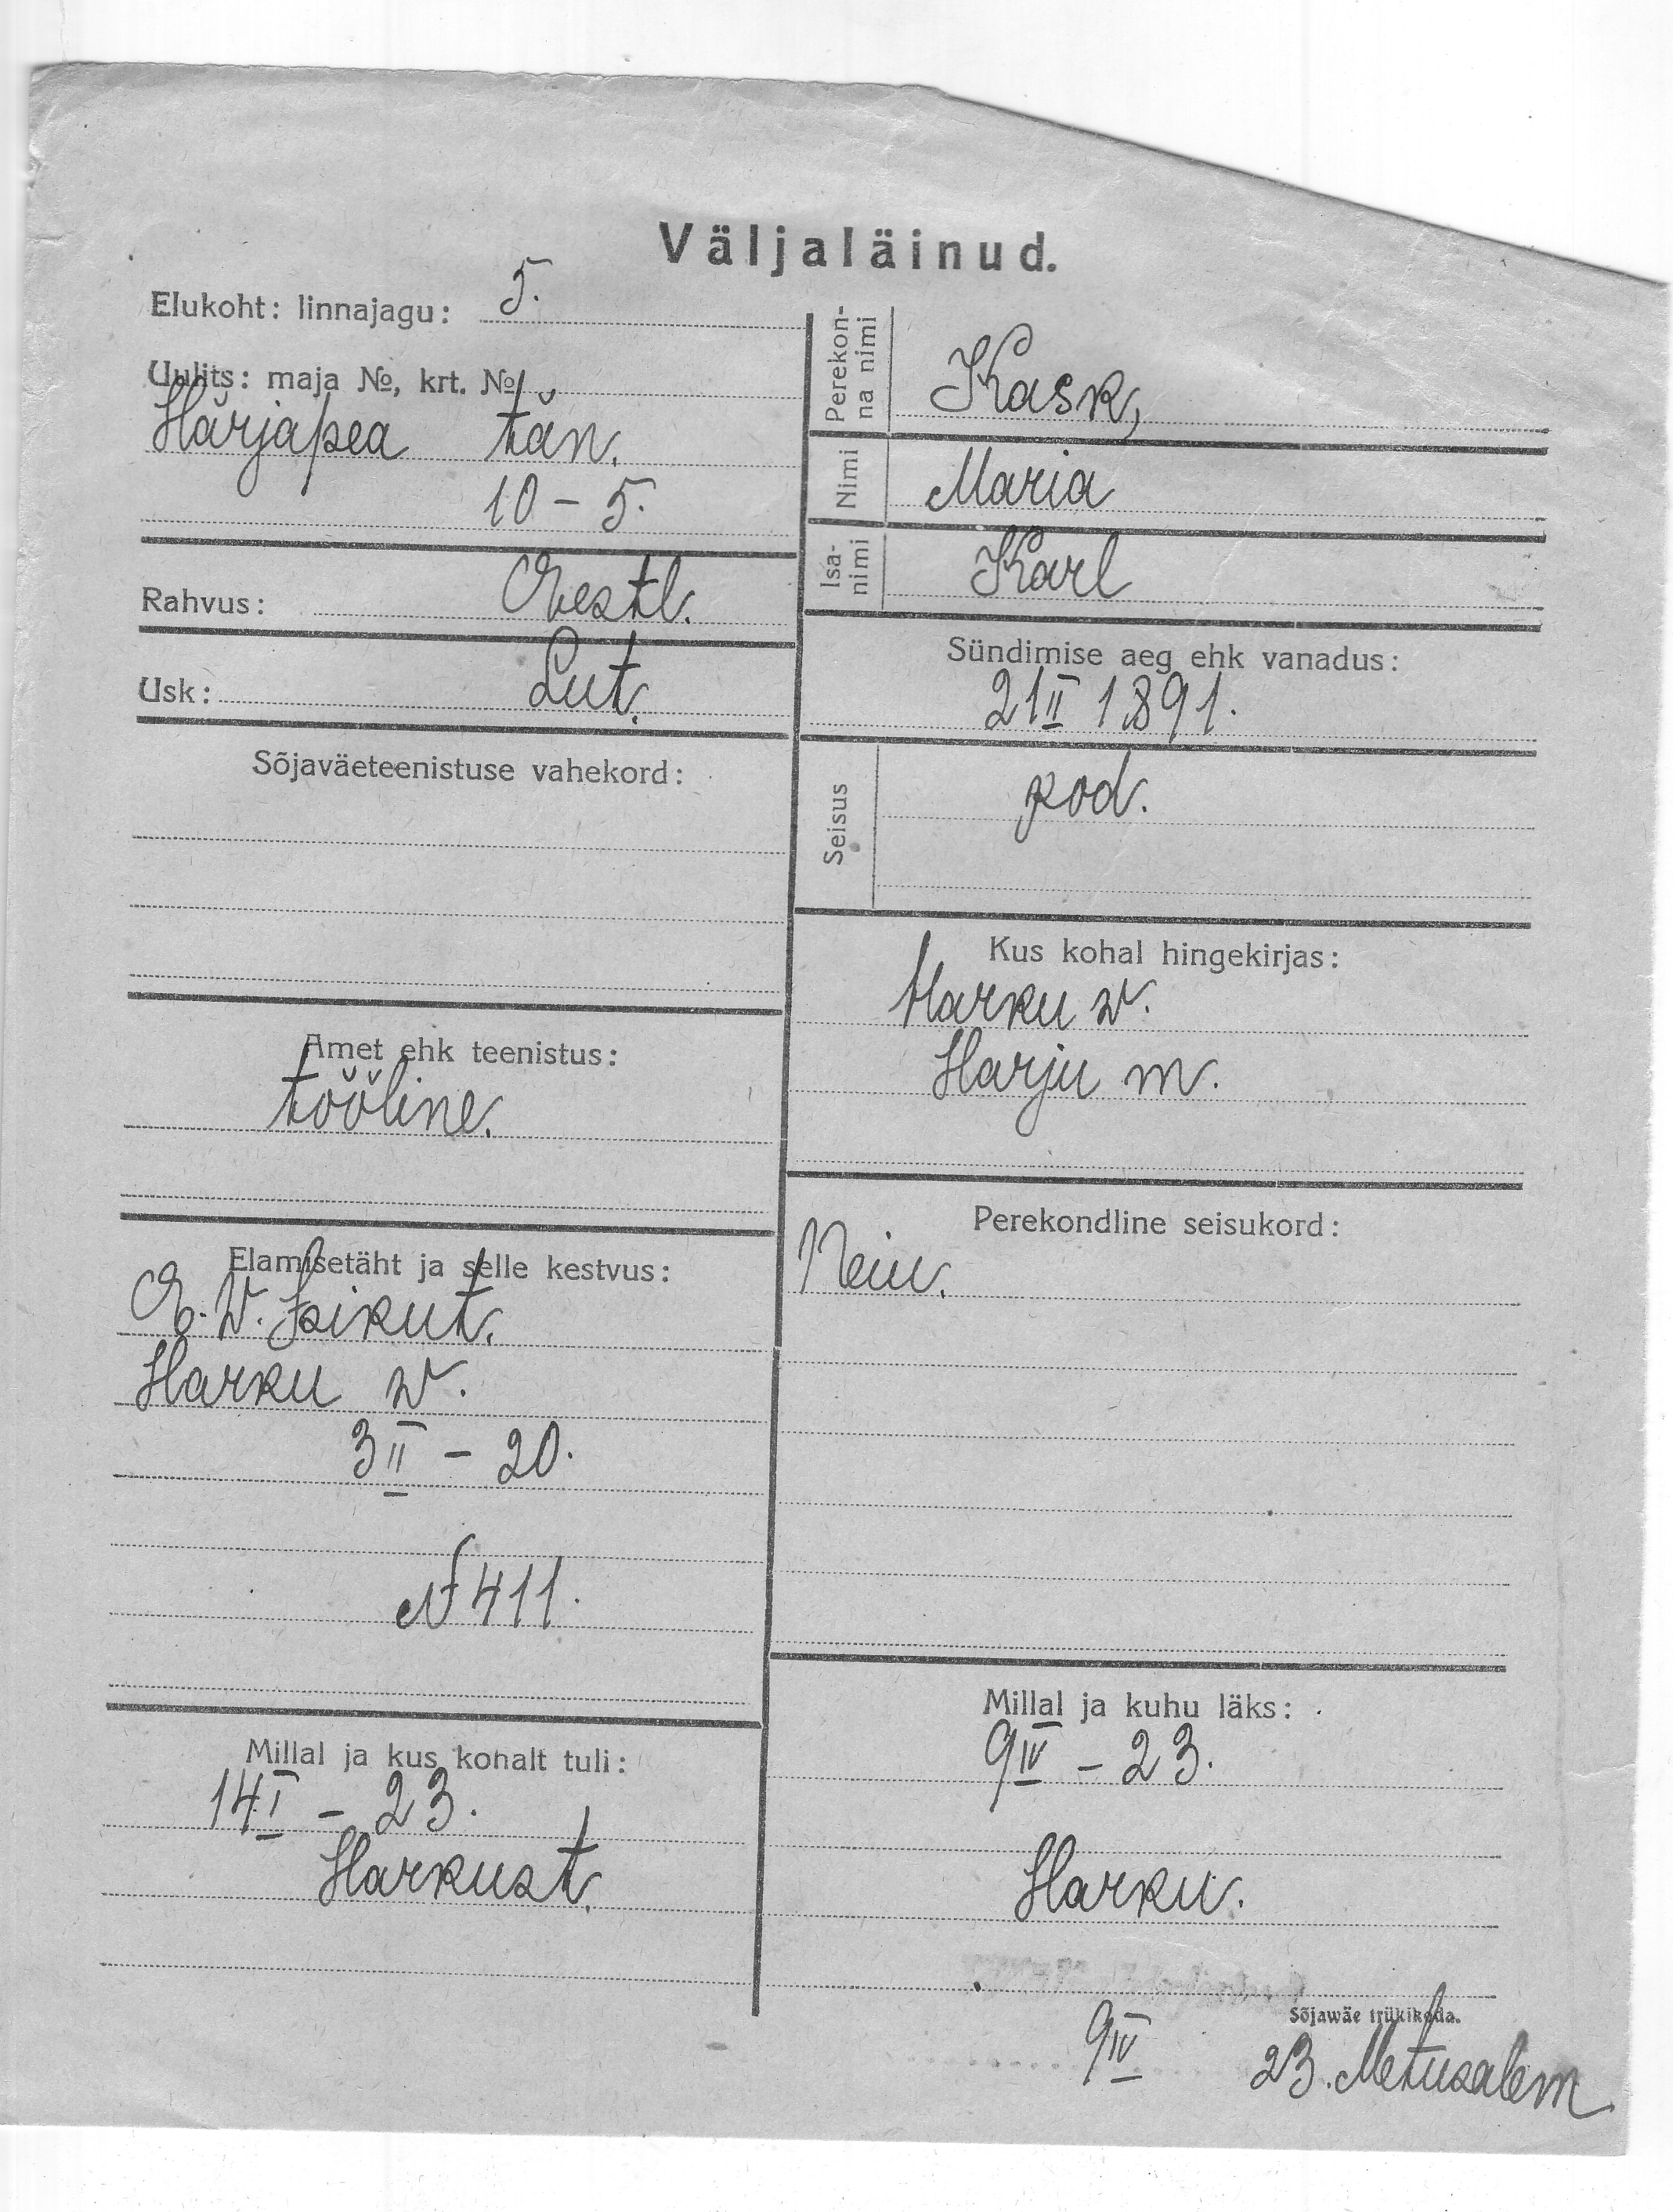 Väljaläinud.
Elukoht: linnajagu: 5.
Uulits: maja №, krt. №
Härjapea tän.
10 – 5.
Rahvus: Eestl.
Usk: Lut.
Sõjaväeteenistuse vahekord:
Amet ehk teenistus:
tööline.
Elamisetäht ja selle kestvus:
E. W. Isikut.
Harku w.
3 II – 20.
№ 411.
Millal ja kus kohalt tuli:
14 I – 23.
Harkust.
Perekonna nimi Kask,
Nimi Maria
Isanimi Karl
Sündimise aeg ehk vanadus:
21 II 1891.
Seisus kod.
Kus kohal hingekirjas:
Harku w.
Harju m.
Perekondline seisukord:
Neiu.
Millal ja kuhu läks:
9 IV – 23.
Harku.
Sõjawäe trükikoda.
9 IV 23. Metusalem